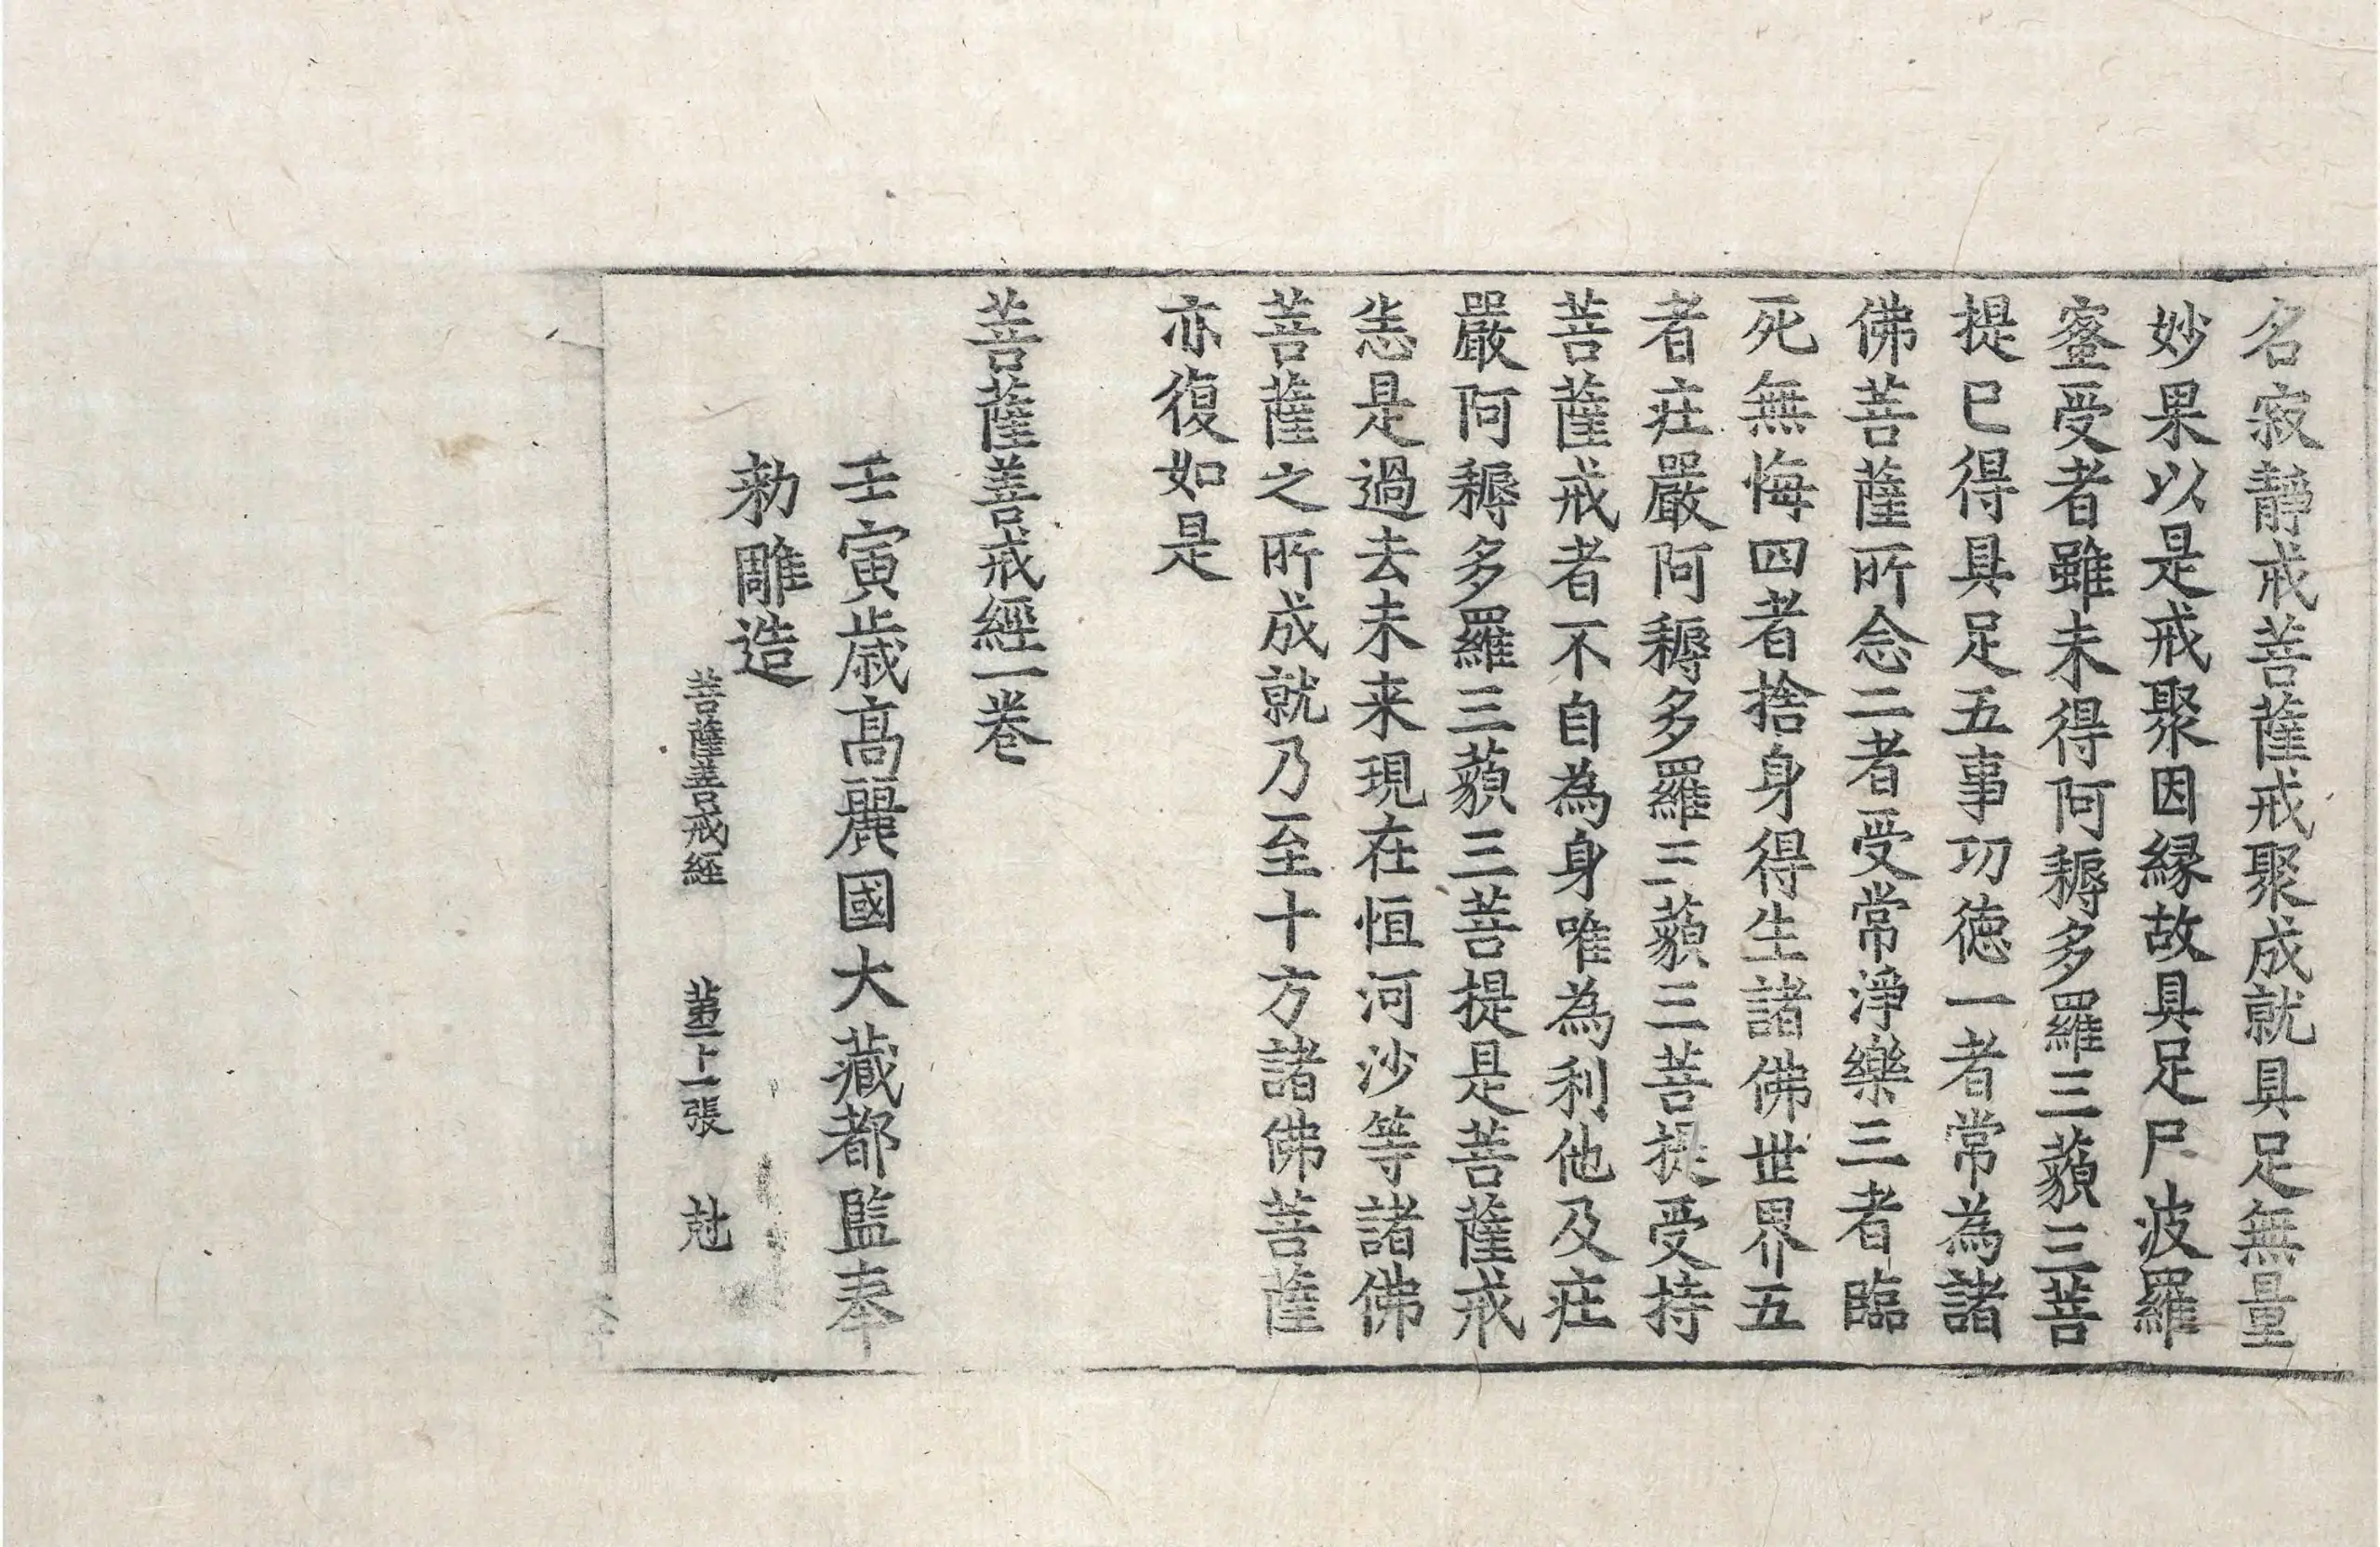 名寂靜戒菩薩戒聚成就具足無量
妙果以是戒聚因緣故具足尸波羅
蜜受者雖未得阿耨多羅三藐三菩
提已得具足五事功德一者常為諸
佛菩薩所念二者受常淨樂三者臨
死無悔四者捨身得生諸佛世界五
者庄嚴阿耨多羅三藐三菩提受持
菩薩戒者不自為身唯為利他及庄
嚴阿耨多羅三藐三菩提是菩薩戒
悉是過去未来現在恒河沙等諸佛
菩薩之所成就乃至十方諸佛菩薩
亦復如是
菩薩善戒經一卷
壬寅歳高麗國大藏都監奉
勑雕造
菩薩善戒經 第二十一張 尅